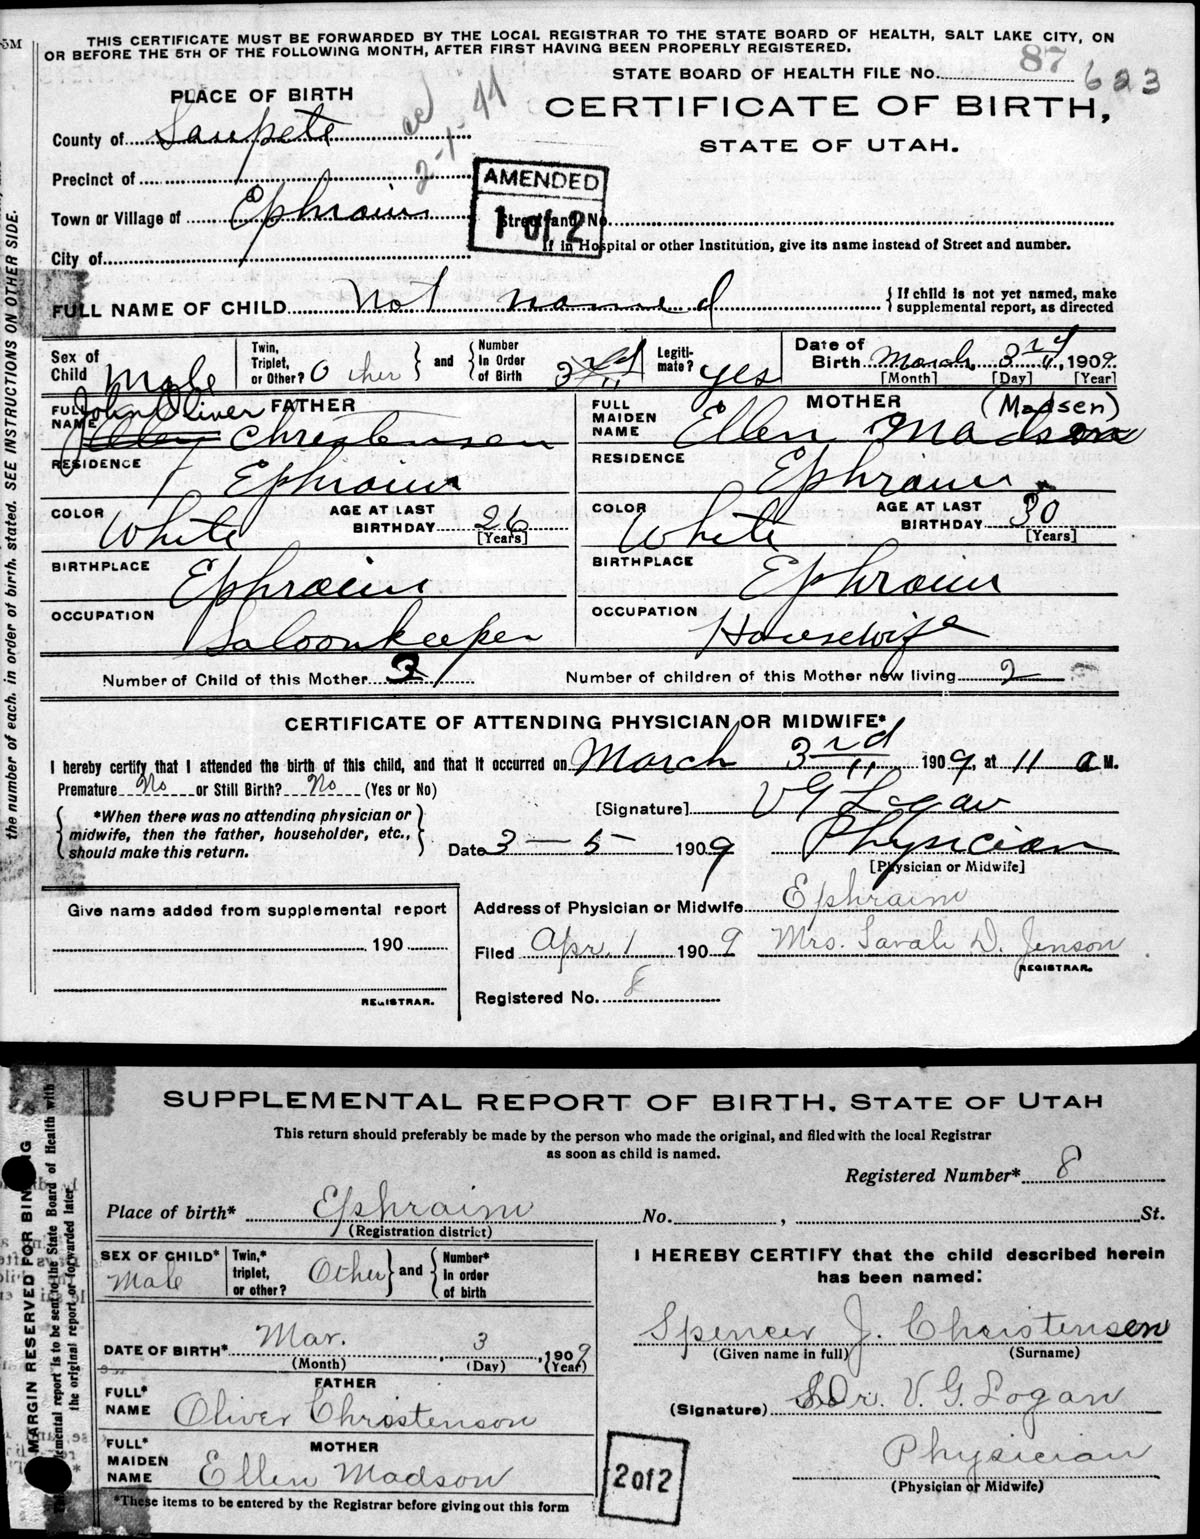 5M
THIS CERTIFICATE MUST BE FORWARDED BY THE LOCAL REGISTRAR TO THE STATE BOARD OF HEALTH, SALT LAKE CITY, ON
OR BEFORE THE 5TH OF THE FOLLOWING MONTH, AFTER FIRST HAVING BEEN PROPERLY REGISTERED.
STATE BOARD OF HEALTH FILE No. 87 623
PLACE OF BIRTH
CERTIFICATE OF BIRTH,
STATE OF UTAH.
County of Sanpete
2-1-44
Precinct of
AMENDED
1 of 2
Town or Village of Ephraim
Street and No.
If in Hospital or other Institution, give its name instead of Street and number.
City of
FULL NAME OF CHILD Not named
{If child is not yet named, make
supplemental report, as directed
Sex of Child Male
Twin, Triplet, or Other? Other } and { Number In Order of Birth 3rd
Legiti-mate? yes
Date of Birth March 3rd 11, 1909.
[Month] [Day] [Year]
FULL NAME FATHER John Oliver Christensen
FULL MAIDEN NAME MOTHER Ellen Madson (Madsen)
RESIDENCE Ephraim
RESIDENCE Ephraim
COLOR White AGE AT LAST BIRTHDAY 26 [Years]
COLOR White AGE AT LAST BIRTHDAY 30 [Years]
BIRTHPLACE Ephraim
BIRTHPLACE Ephraim
OCCUPATION Saloonkeeper
OCCUPATION Housewife
Number of Child of this Mother 3
Number of children of this Mother now living 2 3
CERTIFICATE OF ATTENDING PHYSICIAN OR MIDWIFE*
I hereby certify that I attended the birth of this child, and that it occurred on March 3rd 11 1909, at 11 a M.
Premature No or Still Birth? No (Yes or No)
[Signature] V G Logan
{*When there was no attending physician or
midwife, then the father, householder, etc.,
should make this return.}
Date 3 - 5 - 1909
Physician
[Physician or Midwife]
Give name added from supplemental report
190
REGISTRAR.
Address of Physician or Midwife Ephraim
Filed Apr. 1 1909 Mrs. Sarah D. Jenson
REGISTRAR.
Registered No. 8
the number of each, in order of birth, stated. SEE INSTRUCTIONS ON OTHER SIDE.
SUPPLEMENTAL REPORT OF BIRTH, STATE OF UTAH
This return should preferably be made by the person who made the original, and filed with the local Registrar
as soon as child is named.
Registered Number* 8
Place of birth* Ephraim No. , St.
(Registration district)
SEX OF CHILD* Male
Twin,* triplet, or other? Other } and { Number* In order of birth
DATE OF BIRTH* Mar. 3, 1909
(Month) (Day) (Year)
FATHER
FULL* NAME Oliver Christenson
MOTHER
FULL* MAIDEN NAME Ellen Madson
*These items to be entered by the Registrar before giving out this form
I HEREBY CERTIFY that the child described herein
has been named:
Spencer J. Christensen
(Given name in full) (Surname)
(Signature) Dr. V. G. Logan
Physician
(Physician or Midwife)
2 of 2
MARGIN RESERVED FOR BINDING
report is to be sent to the State Board of Health with
the original report or forwarded later